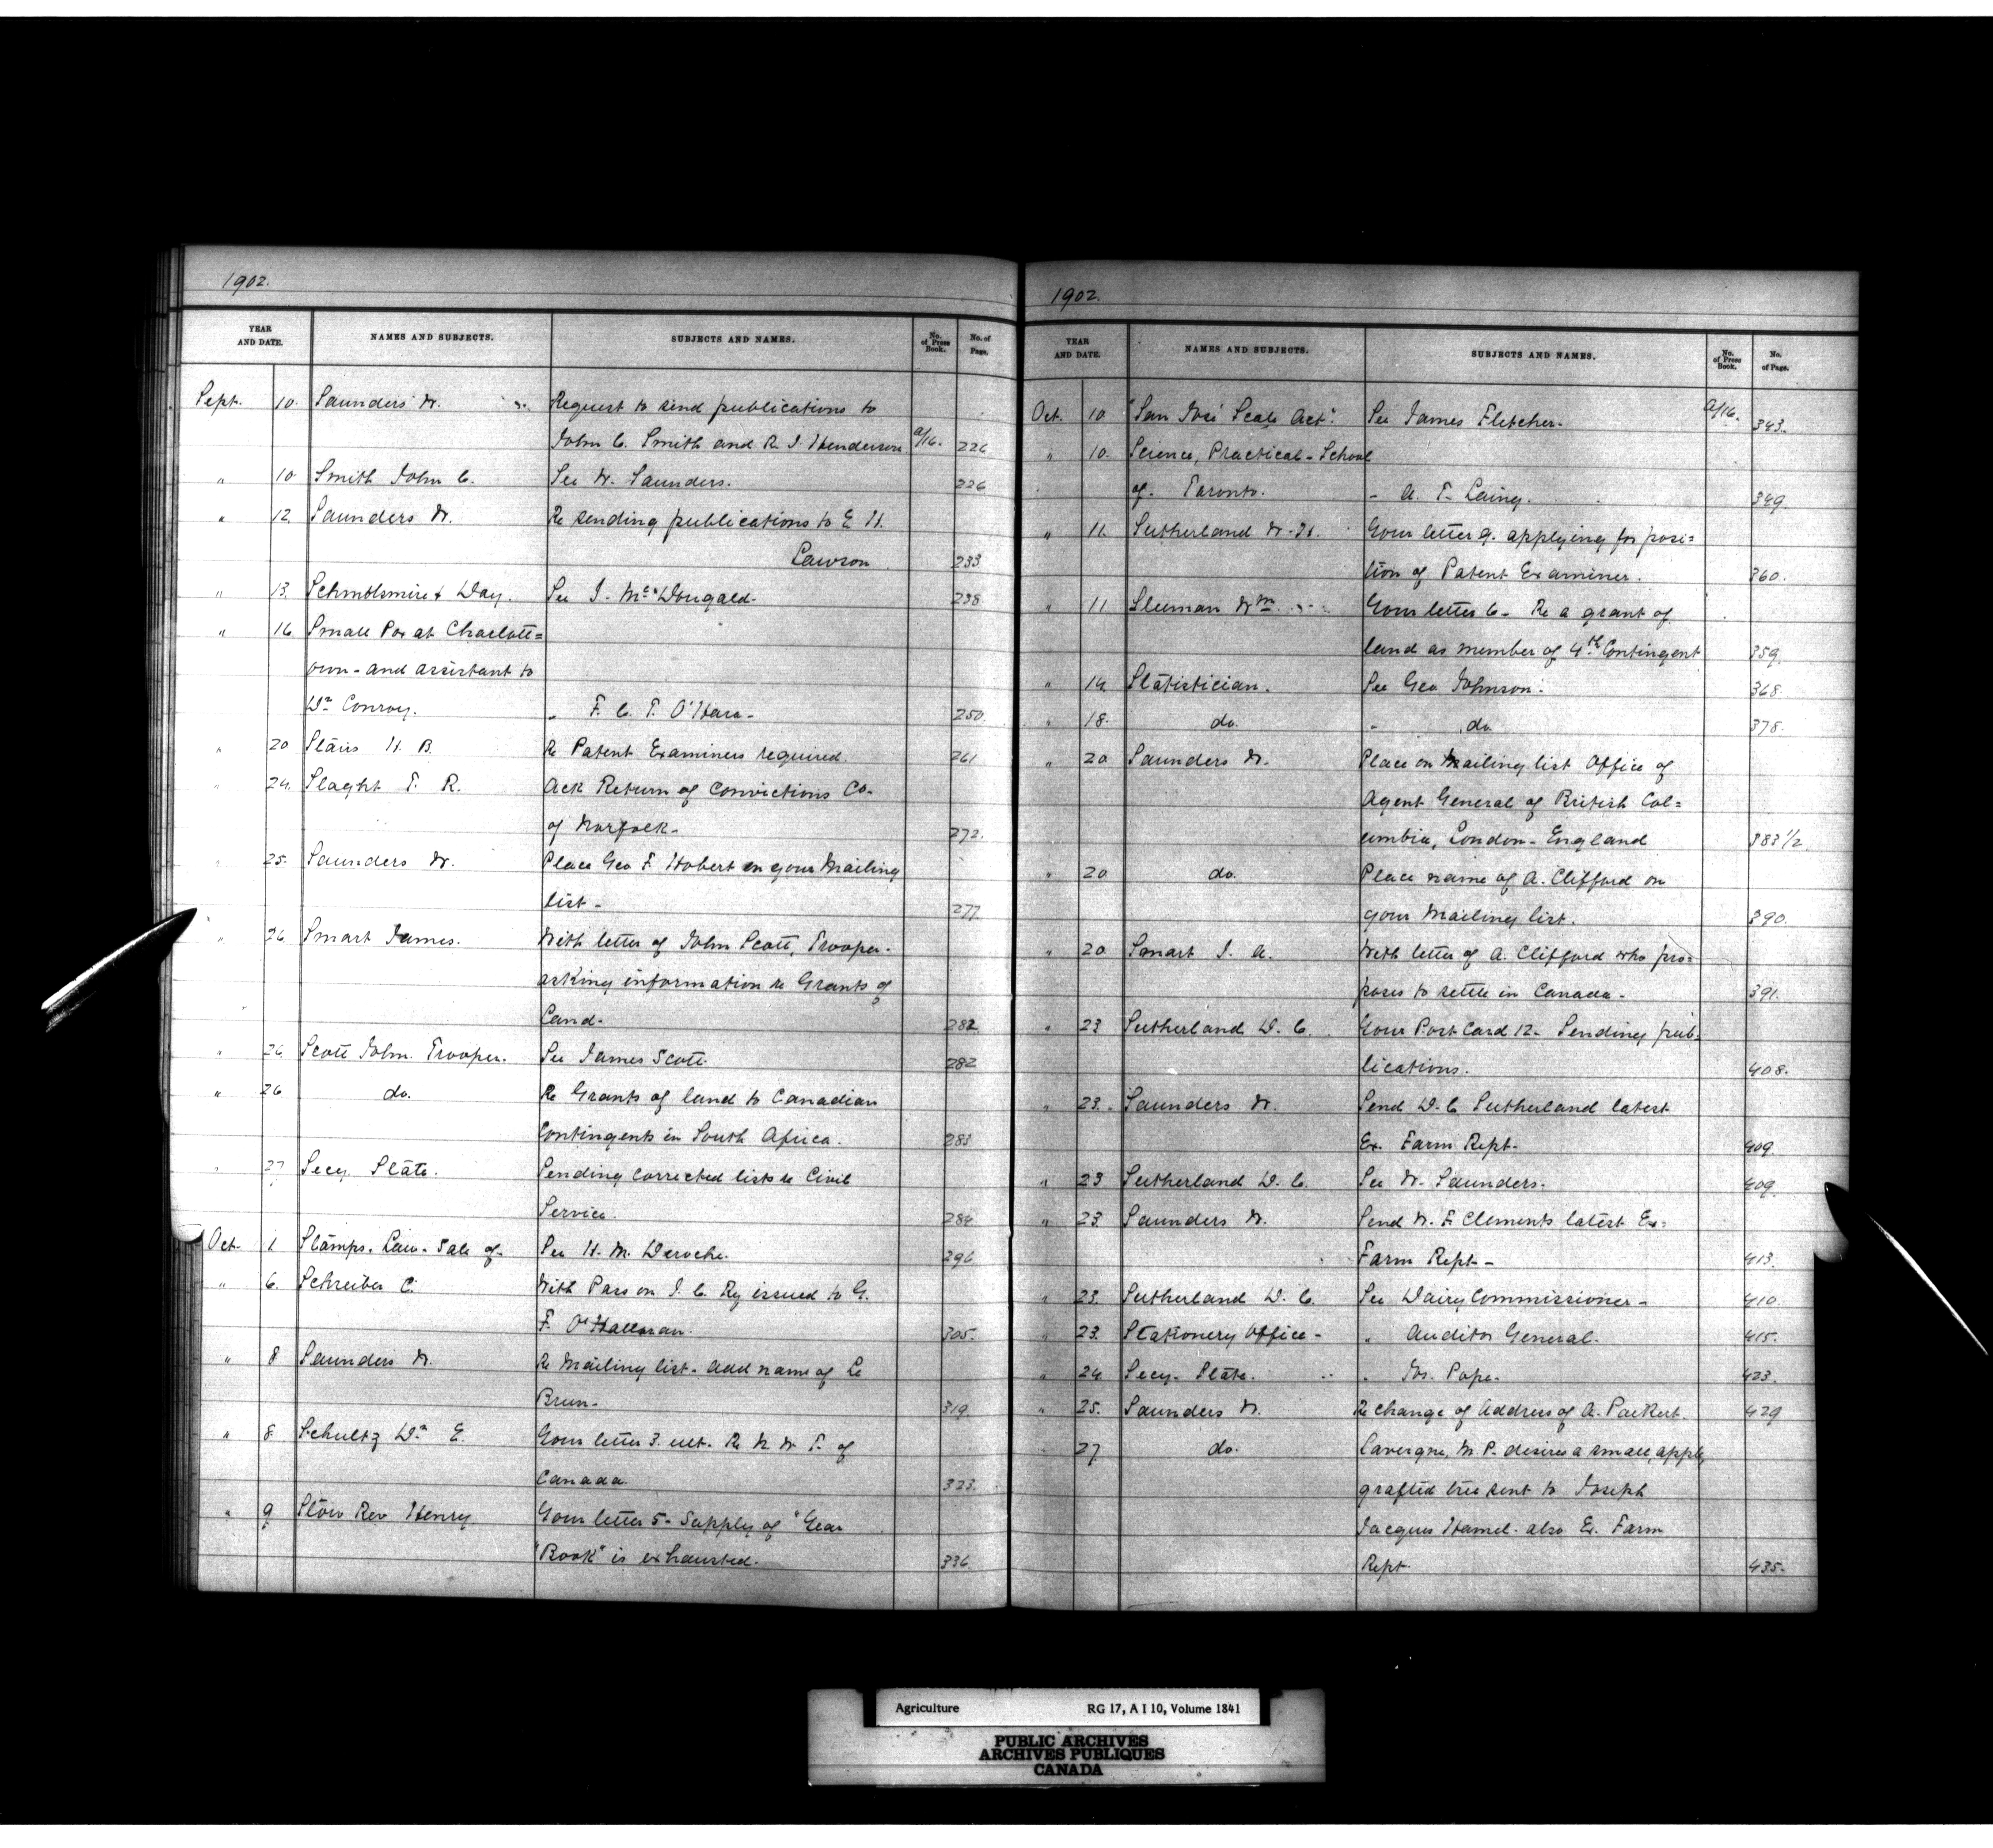 1902.
YEAR AND DATE. NAMES AND SUBJECTS. SUBJECTS AND NAMES. No. of Press Book. No. of Page.
Sept. 10. Saunders W. Request to send publications to
John C. Smith and R. J. Henderson a/16. 226
" 10 Smith John C. See W. Saunders. 226
" 12 Saunders W. Re sending publications to E H.
Lawson 233
" 13. & Day. See J. McDougald. 238
" 16 Small Pox at Charlott=
own - and assistant to
Dr Conroy. " F. C. T. O'Hara - 250.
" 20 Stairs H. B. Re Patent Examiners required. 261
" 24. Slaght T. R. Ack Return of Convictions Co.
of Norfolk - 272.
" 25. Saunders W. Place Geo F. Hobert on your Mailing
list - 277
" 26 Smart James. With letter of John Scott, Trooper.
asking information re Grants of
Land - 282
" 26 Scott John. Trooper. See James Scott. 282
" 26 do. Re Grants of land to Canadian
Contingents in South Africa. 283
" 27 Secy State. Sending corrected lists re Civil
Service. 284
Oct. 1 Stamps. Law - Sale of - See H. M. Deroche. 296
" 6. Schreiber C. With Pass on I. C. Ry issued to G.
F. O'Halloran. 305.
" 8 Saunders W. Re Mailing list - add name of Le
Brun - 319.
" 8 Schultz Dr E. Your letter 3. ult. Re N. W. T. of
Canada. 323.
" 9 Stow Rev Henry Your letter 5 - Supply of "Year
"Book" is exhausted. 336
1902.
YEAR AND DATE. NAMES AND SUBJECTS. SUBJECTS AND NAMES. No. of Press Book. No. of Page.
Oct. 10 "San José Scale Act". See James Fletcher. a/16. 343.
" 10. Science, Practical - School
of Toronto. - A. T. Laing. 349
" 11. Sutherland W. H. Your letter 9. applying for posi=
tion of Patent Examiner. 360.
" 11 Sleeman Wm Your letter 6 - Re a grant of
land as member of 4th Contingent 359
" 14 Statistician. See Geo Johnson. 368
" 18. do. - do. 378.
" 20 Saunders W. Place on Mailing list Office of
Agent General of British Col=
umbia, London - England 383 1/2
" 20 do. Place name of A. Clifford on
your Mailing list. 390.
" 20 Smart J. A. With letter of A. Clifford who pro=
poses to settle in Canada - 391.
" 23 Sutherland D. C. Your Post Card 12 - Sending pub-
lications. 408.
" 23. Saunders W. Send D. C Sutherland latest
Ex. Farm Rept - 409
" 23 Sutherland D. C. See W. Saunders. 409.
" 23. Saunders W. Send W. F. Clements latest Ex.
Farm Rept - 413.
" 23. Sutherland D. C. See Dairy Commissioner - 410.
" 23. Stationery Office - " Auditor General - 415.
" 24 Secy. State. " Jos. Pope - 423.
" 25. Saunders W. Re change of Address of A. Packert. 429
27 do. Lavergne, M. P. desires a small, apple,
grafted tree sent to Joseph
Jacques Hamel. also Ex. Farm
Rept. 435.
Agriculture RG 17, A I 10, Volume 1841
PUBLIC ARCHIVES
ARCHIVES PUBLIQUES
CANADA